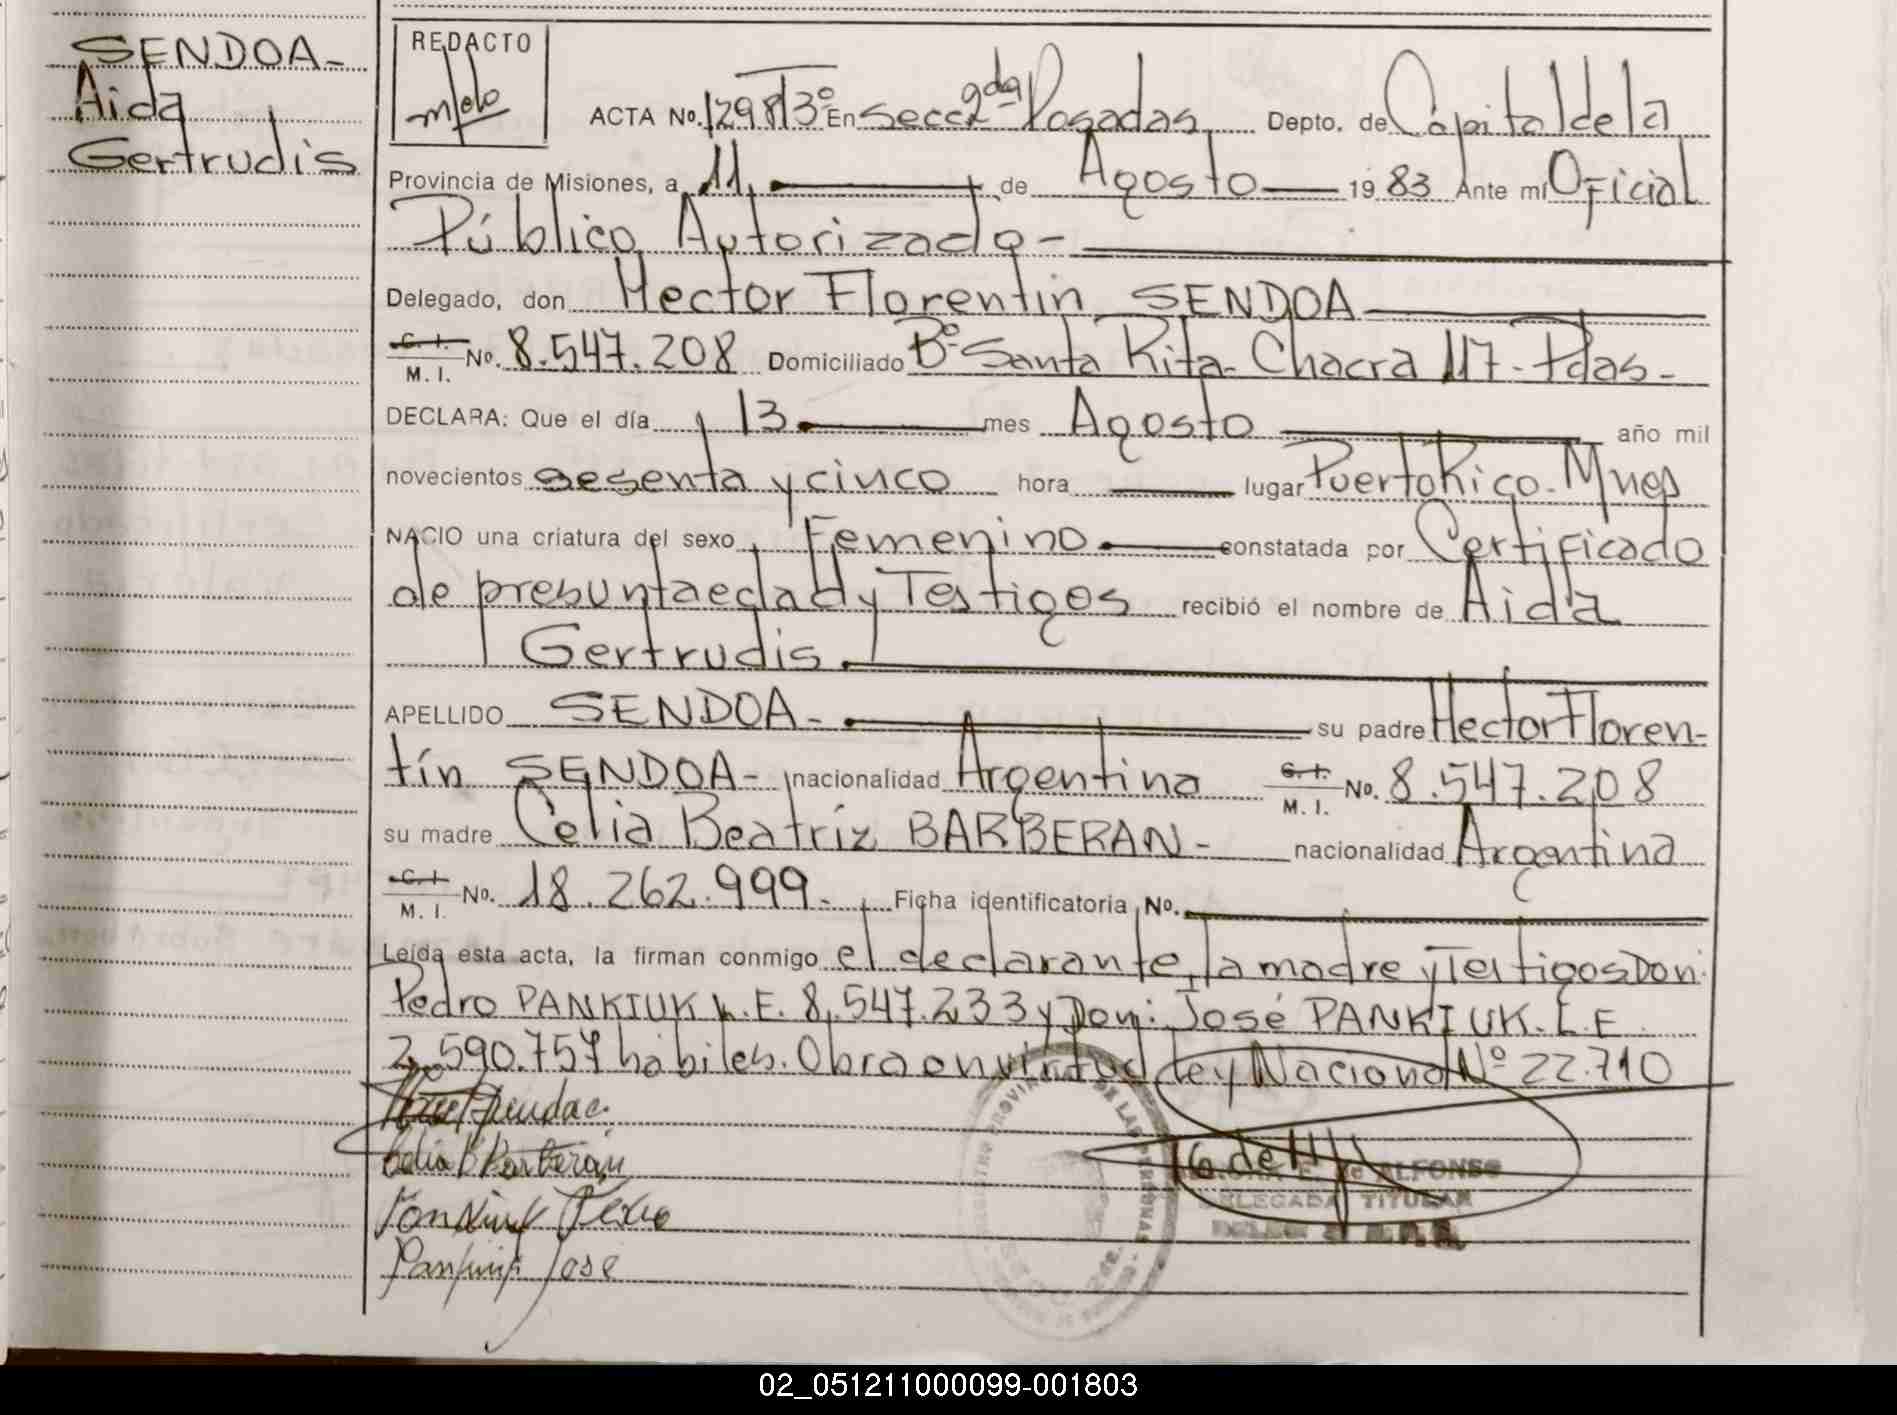 SENDOA-
Aida
Gertrudis
REDACTO
Melo
ACTA No. 1298/3° En Secc 2da Posadas Depto. de Capital de la
Provincia de Misiones, a 11 de Agosto 1983 Ante mí Oficial
Público Autorizado-
Delegado, don Hector Florentin SENDOA
C. I. M. I. No. 8.547.208 Domiciliado B° Santa Rita- Chacra 117- Pdas-
DECLARA: Que el día 13 mes Agosto año mil
novecientos sesenta y cinco hora lugar Puerto Rico- Mnes
NACIO una criatura del sexo Femenino constatada por Certificado
de presunta edad y Testigos recibió el nombre de Aida
Gertrudis
APELLIDO SENDOA- su padre Hector Floren-
tín SENDOA- nacionalidad Argentina C. I. M. I. No. 8.547.208
su madre Celia Beatríz BARBERAN- nacionalidad Argentina
C. I. M. I. No. 18.262.999- Ficha identificatoria No.
Leída esta acta, la firman conmigo el declarante, la madre y Testigos Don:
Pedro PANKIUK L.E. 8.547.233 y Don: José PANKIUK. L.E
2.590.757 hábiles. Obra en virtud Ley Nacional Nº 22.710
Celia B Barberán
Pedro
José
G. de
E. de ALFONSO
DELEGADA TITULAR
02_051211000099-001803